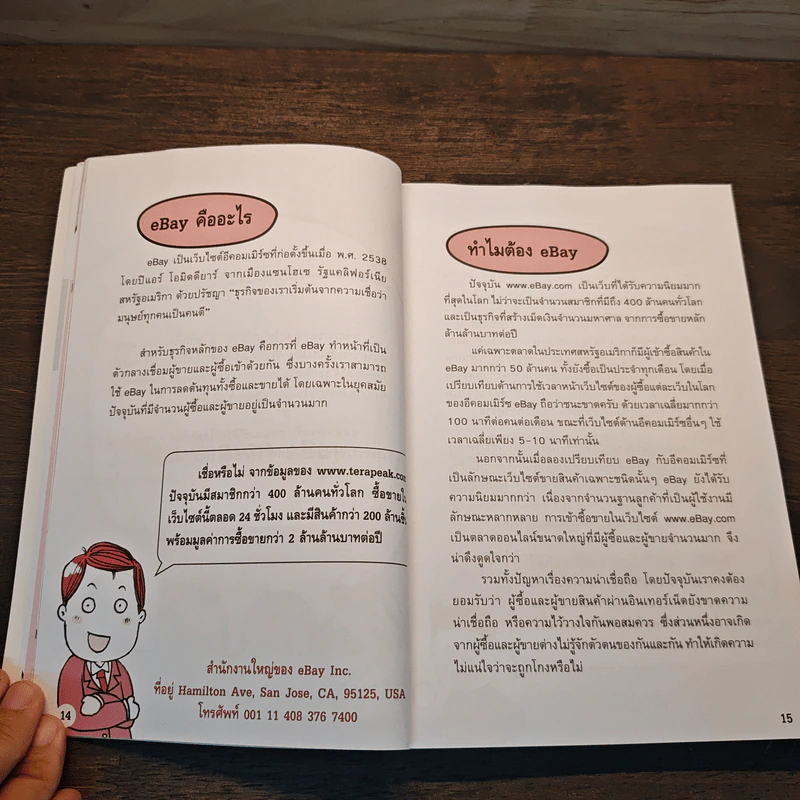 eBay คืออะไร
eBay เป็นเว็บไซต์อีคอมเมิร์ซที่ก่อตั้งขึ้นเมื่อ พ.ศ. 2538
โดยปีแอร์ โอมิดดียาร์ จากเมืองแซนโฮเซ รัฐแคลิฟอร์เนีย
สหรัฐอเมริกา ด้วยปรัชญา “ธุรกิจของเราเริ่มต้นจากความเชื่อว่า
มนุษย์ทุกคนเป็นคนดี”
สำหรับธุรกิจหลักของ eBay คือการที่ eBay ทำหน้าที่เป็น
ตัวกลางเชื่อมผู้ขายและผู้ซื้อเข้าด้วยกัน ซึ่งบางครั้งเราสามารถ
ใช้ eBay ในการลดต้นทุนทั้งซื้อและขายได้ โดยเฉพาะในยุคสมัย
ปัจจุบันที่มีจำนวนผู้ซื้อและผู้ขายอยู่เป็นจำนวนมาก
เชื่อหรือไม่ จากข้อมูลของ www.terapeak.com
ปัจจุบันมีสมาชิกกว่า 400 ล้านคนทั่วโลก ซื้อขายใน
เว็บไซต์นี้ตลอด 24 ชั่วโมง และมีสินค้ากว่า 200 ล้านชิ้น
พร้อมมูลค่าการซื้อขายกว่า 2 ล้านล้านบาทต่อปี
สำนักงานใหญ่ของ eBay Inc.
ที่อยู่ Hamilton Ave, San Jose, CA, 95125, USA
โทรศัพท์ 001 11 408 376 7400
14
ทำไมต้อง eBay
ปัจจุบัน www.eBay.com เป็นเว็บที่ได้รับความนิยมมาก
ที่สุดในโลก ไม่ว่าจะเป็นจำนวนสมาชิกที่มีถึง 400 ล้านคนทั่วโลก
และเป็นธุรกิจที่สร้างเม็ดเงินจำนวนมหาศาล จากการซื้อขายหลัก
ล้านล้านบาทต่อปี
แค่เฉพาะตลาดในประเทศสหรัฐอเมริกาก็มีผู้เข้าซื้อสินค้าใน
eBay มากกว่า 50 ล้านคน ทั้งยังซื้อเป็นประจำทุกเดือน โดยเมื่อ
เปรียบเทียบด้านการใช้เวลาหน้าเว็บไซต์ของผู้ซื้อแต่ละเว็บในโลก
ของอีคอมเมิร์ซ eBay ถือว่าชนะขาดครับ ด้วยเวลาเฉลี่ยมากกว่า
100 นาทีต่อคนต่อเดือน ขณะที่เว็บไซต์ด้านอีคอมเมิร์ซอื่นๆ ใช้
เวลาเฉลี่ยเพียง 5-10 นาทีเท่านั้น
นอกจากนั้นเมื่อลองเปรียบเทียบ eBay กับอีคอมเมิร์ซที่
เป็นลักษณะเว็บไซต์ขายสินค้าเฉพาะชนิดนั้นๆ eBay ยังได้รับ
ความนิยมมากกว่า เนื่องจากจำนวนฐานลูกค้าที่เป็นผู้ใช้งานมี
ลักษณะหลากหลาย การเข้าซื้อขายในเว็บไซต์ www.eBay.com
เป็นตลาดออนไลน์ขนาดใหญ่ที่มีผู้ซื้อและผู้ขายจำนวนมาก จึง
น่าดึงดูดใจกว่า
รวมทั้งปัญหาเรื่องความน่าเชื่อถือ โดยปัจจุบันเราคงต้อง
ยอมรับว่า ผู้ซื้อและผู้ขายสินค้าผ่านอินเทอร์เน็ตยังขาดความ
น่าเชื่อถือ หรือความไว้วางใจกันพอสมควร ซึ่งส่วนหนึ่งอาจเกิด
จากผู้ซื้อและผู้ขายต่างไม่รู้จักตัวตนของกันและกัน ทำให้เกิดความ
ไม่แน่ใจว่าจะถูกโกงหรือไม่
15